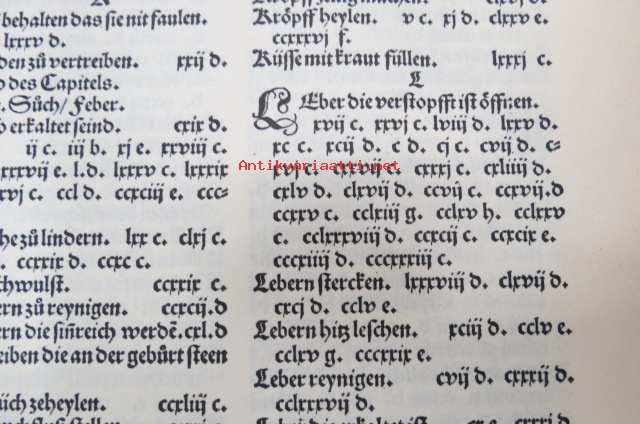 behalten das sie nit faulen.
lxxv d.
den zů vertreiben. xxij d.
des Capitels.
Sůch/ Feber.
erkaltet seind. cxix d.
ij c. iij b. xj e. xxviij c.
xxxvij e. l.d. lxxxv c. lxxxix
xvj c. ccl d. ccxciij e. ccc-
he zů lindern. lxx c. clxj c.
ccxxix d. ccxc c.
chwulst. ccxxix c.
ern zů reynigen. ccxcij.d
ern die siñreich werdē. cxl.d
eiben die an der gebůrt steen
ůch zeheylen. ccxliij c.
Kröpff heylen. v c. xj d. clxxv e.
ccxxxvj f.
Küsse mit kraut füllen. lxxxj c.
L
LEber die verstopfft ist öffnen.
xvij c. xxvj c. lviij d. lxxv d.
xc c. xcij d. c d. cj c. cvij d. c-
Antikvariaatti.net
cxxxj c. cxliiij d.
cxlv d. clxvij d. ccvij c. ccxvij.d
ccxxv c. cclxiij g. cclxv h. cclxxv
c. cclxxxviij d. ccxcij c. ccxcix e.
cccxiiij d. cccxxxiij c.
Lebern stercken. lxxxviij d. clxvij d.
cxcj d. cclv e.
Lebern hitz leschen. xciij d. cclv e.
cclxv g. cccxxix e.
Leber reynigen. cvij d. cxxxij d.
cclxxxvij d.